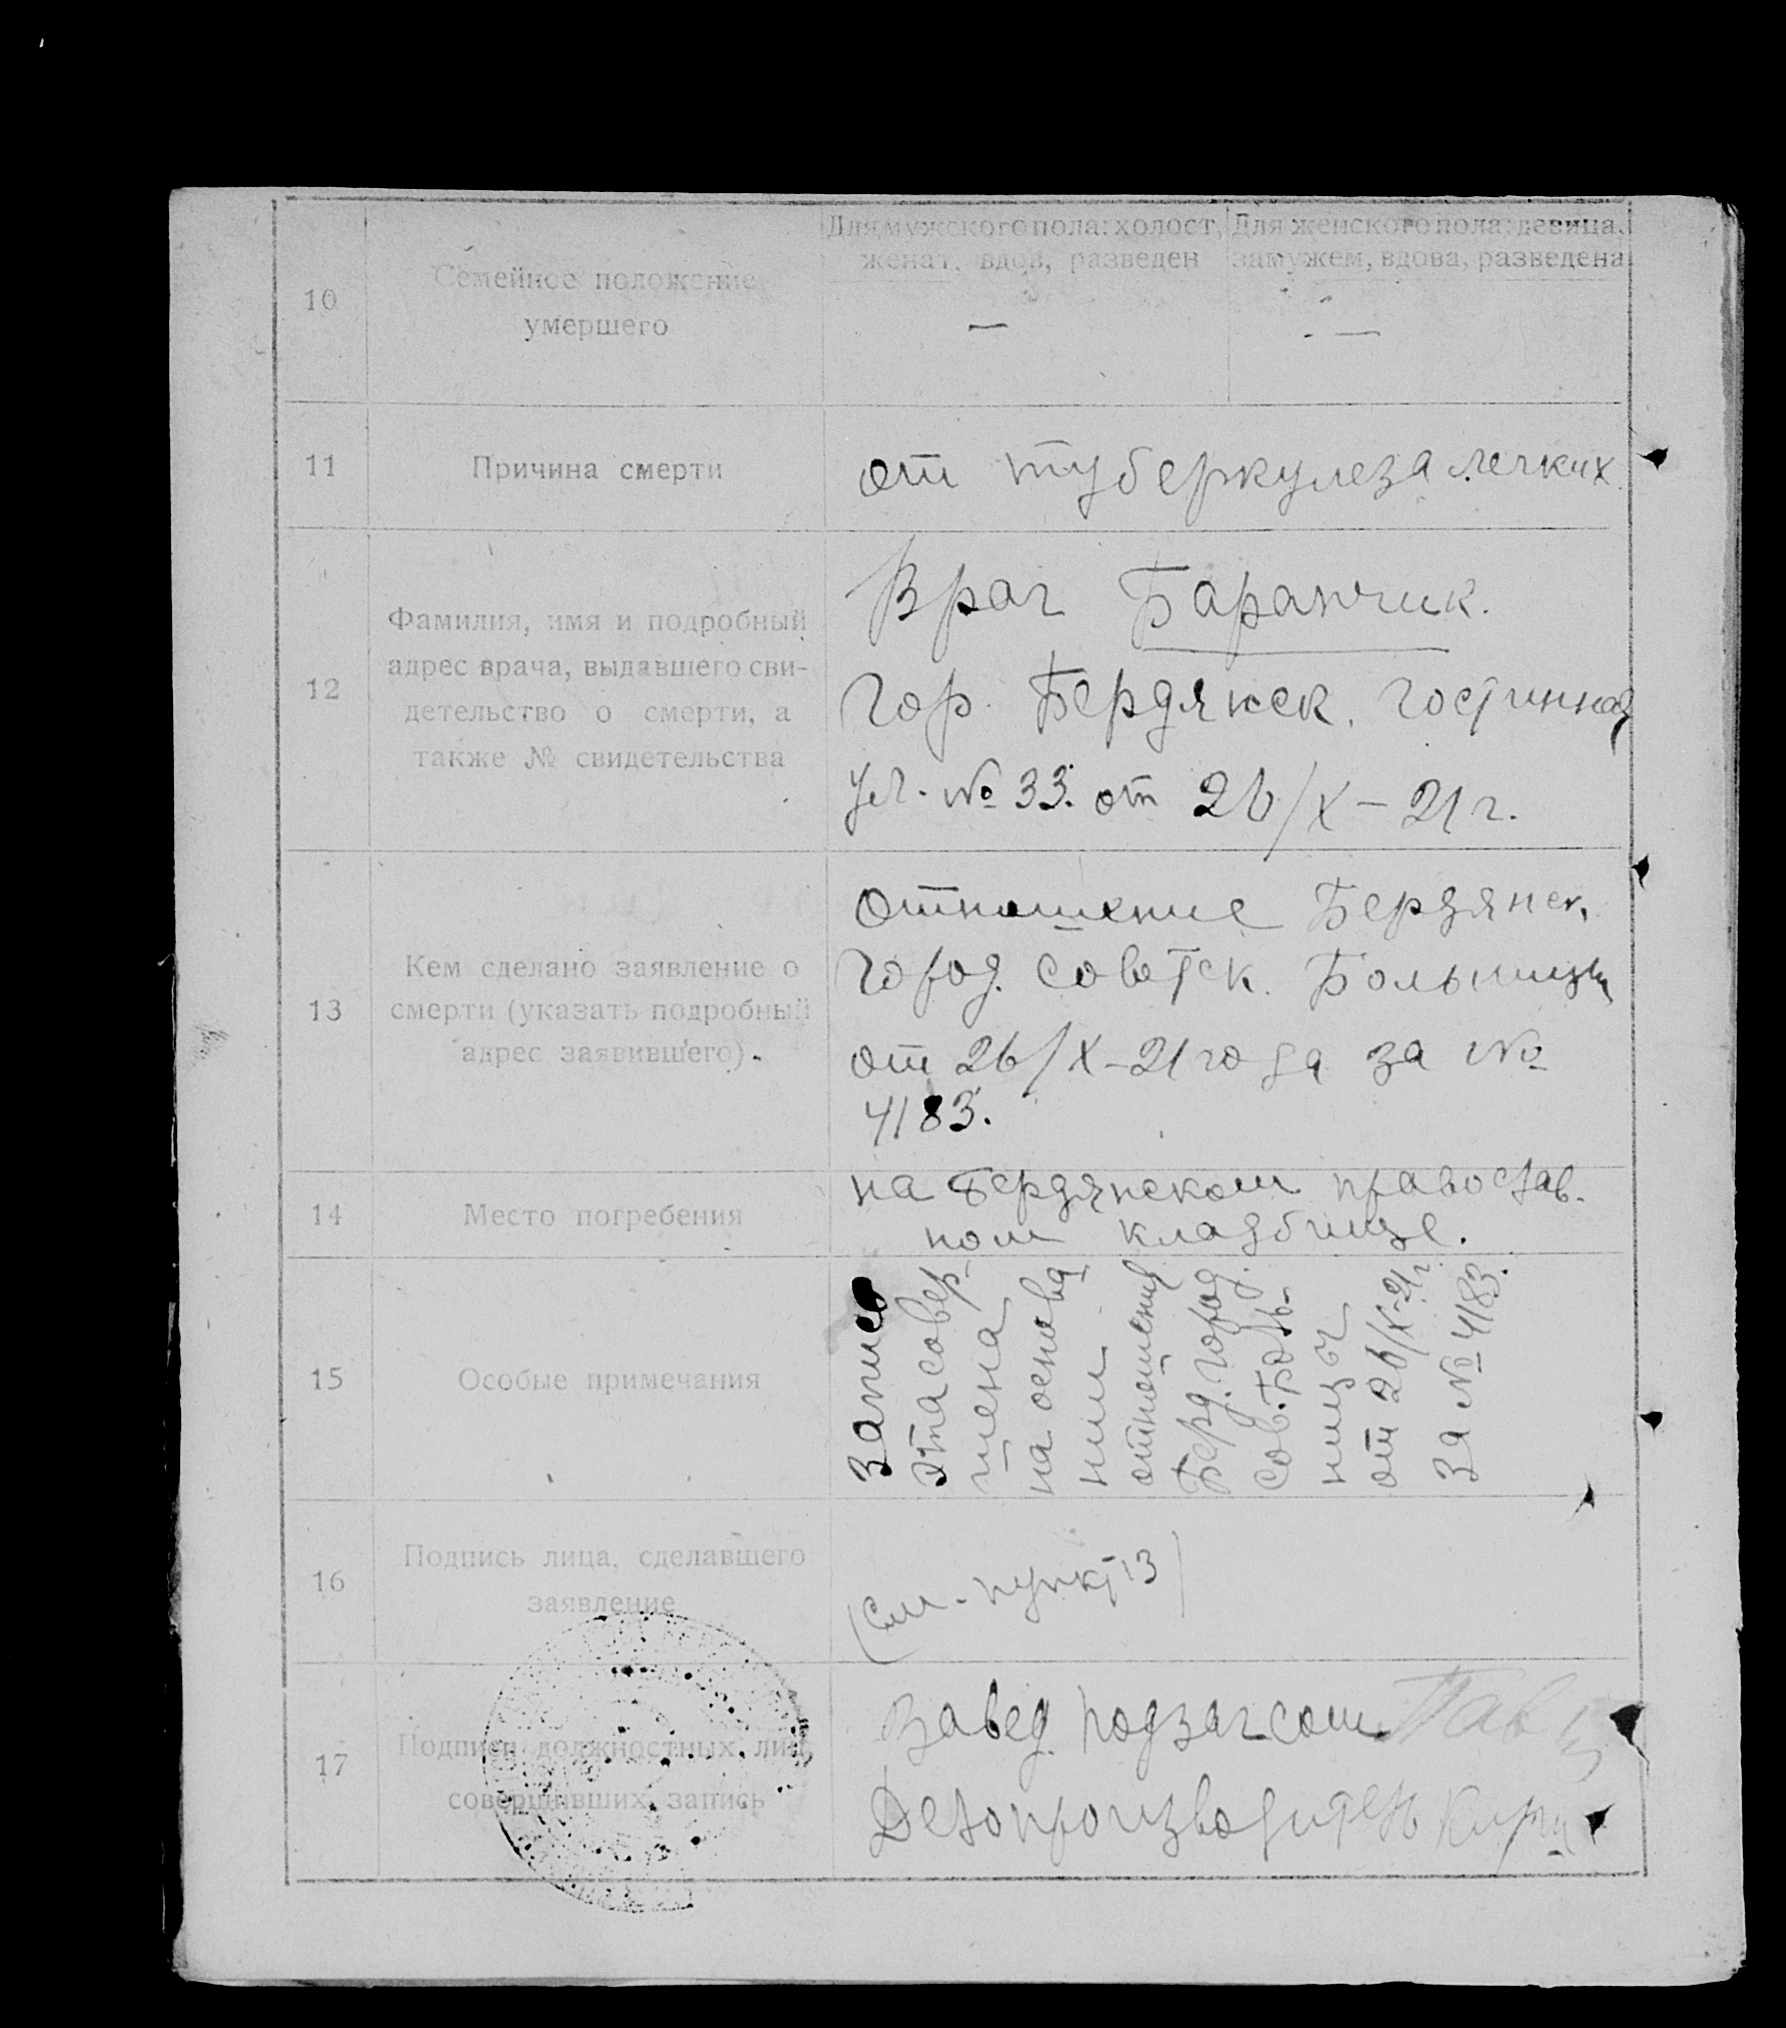 10
Семейное положение
умершего
Для мужского пола: холост,
женат, вдов, разведен
—
Для женского пола: девица,
замужем, вдова, разведена
—
11
Причина смерти
от туберкулеза легких
12
Фамилия, имя и подробный
адрес врача, выдавшего сви-
детельство о смерти, а
также № свидетельства
Врач Баранчик.
Гор. Бердянск. Гостинная
ул. № 33. от 26/X–21 г.
13
Кем сделано заявление о
смерти (указать подробный
адрес заявившего).
Отношение Бердянск.
Город. Советск. Больницы
от 26/X–21 года за №
4183.
14
Место погребения
на Бердянском православ-
ном кладбище.
15
Особые примечания
Запись
эта совер-
шена
на основа
нии
отношения
Берд. Город.
Сов. Боль-
ницы
от 26/X–21 г.
за № 4183.
16
Подпись лица, сделавшего
заявление
(См. пункт 13)
17
Подписи должностных лиц,
совершивших запись
Завед. подзагсом
Делопроизводитель